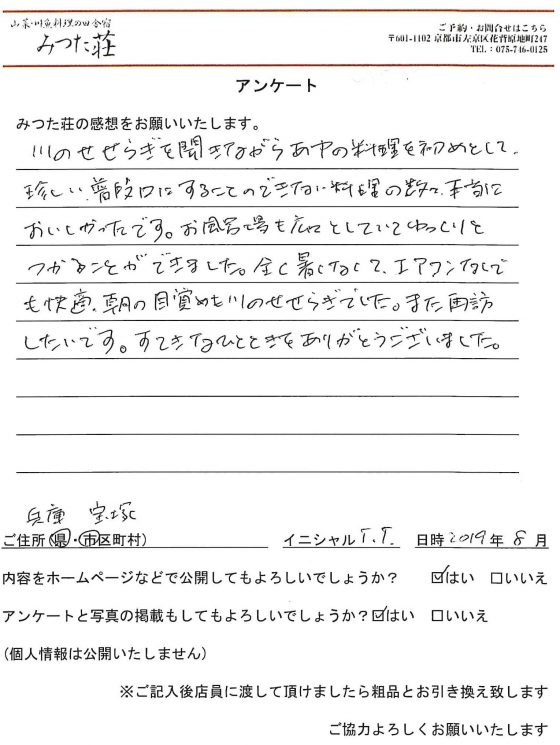 山菜・川魚料理の田舎宿
みつた荘
ご予約・お問合せはこちら
〒601-1102 京都市左京区花脊原地町247
TEL：075-746-0125
アンケート
みつた荘の感想をお願いいたします。
川のせせらぎを聞きながらあゆの料理を初めとして、
珍しい、普段口にすることのできない料理の数々、本当に
おいしかったです。お風呂場も広々としていてゆっくりと
つかることができました。全く暑くなくて、エアコンなしで
も快適、朝の目覚めも川のせせらぎでした。また再訪
したいです。すてきなひとときをありがとうございました。
兵庫 宝塚
ご住所(県・市区町村) イニシャル T.T. 日時 2019年 8月
内容をホームページなどで公開してもよろしいでしょうか？ ☑はい □いいえ
アンケートと写真の掲載もしてもよろしいでしょうか？☑はい □いいえ
(個人情報は公開いたしません)
※ご記入後店員に渡して頂けましたら粗品とお引き換え致します
ご協力よろしくお願いいたします